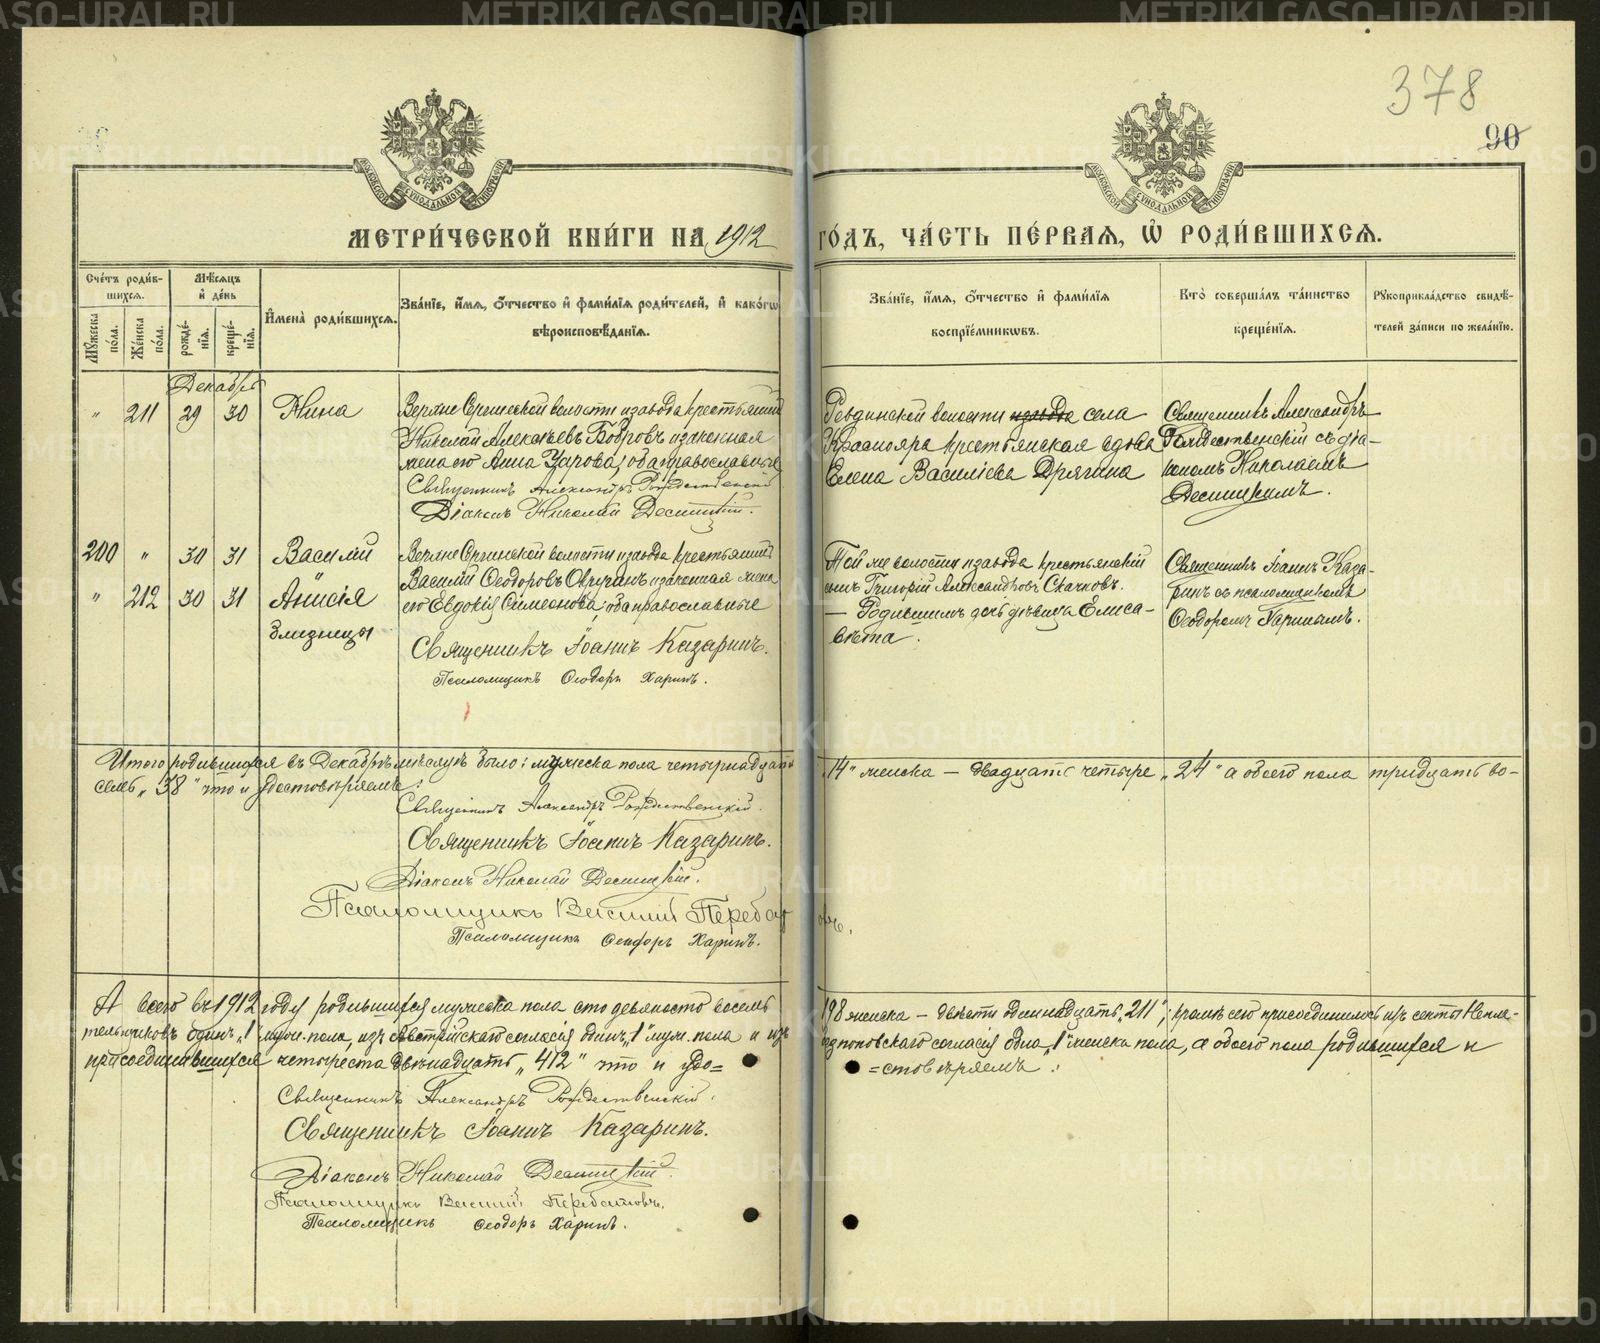 METRIKI.GASO-URAL.RU
378
90
МОСКОВСКОЙ СѴНОДАЛЬНОЙ ТИПОГРАФІИ
МОСКОВСКОЙ СѴНОДАЛЬНОЙ ТИПОГРАФІИ
МЕТРИ́ЧЕСКОЙ КНИ́ГИ НА 1912 ГО́ДЪ, ЧА́СТЬ ПЕ́РВАѦ, Ѡ҆ РОДИ́ВШИХСѦ.
Сче́тъ роди́вшихсѧ.
Мꙋжеска по́ла.
Же́нска по́ла.
Мѣ́сѧцъ и҆ де́нь
рожде́нїѧ.
креще́нїѧ.
И҆мена̀ роди́вшихсѧ.
Зва́нїе, и҆́мѧ, ѻ҆́тчество и҆ фами́лїѧ роди́телей, и҆ како́гѡ
вѣроисповѣ́данїѧ.
Зва́нїе, и҆́мѧ, ѻ҆́тчество и҆ фами́лїѧ
воспрїе́мникѡвъ.
Кто̀ соверша́лъ та́инство
креще́нїѧ.
Рꙋкоприкла́дство свидѣ́телей за́писи по жела́нїю.
Декабрь
" 211 29 30 Нина
Верхне Сергинской волости и завода крестьянинъ
Николай Алексѣевъ Бобровъ и законная
жена его Анна Уарова; оба православные
Священникъ Александръ Рождественскій
Діаконъ Николай Десницкій.
Ревдинской волости завода села
Краснояра крестьянская вдова
Елена Василіева Дрягина
Священникъ Александръ
Рождественскій съ діа-
кономъ Николаемъ
Десницкимъ.
200 " 30 31 Василій
" 212 30 31 Анисія
Близнецы
Верхне Сергинской волости и завода крестьянинъ
Василій Ѳеодоровъ и законная жена
его Евдокія Симеонова; оба православные
Священникъ Іоаннъ Казаринъ.
Псаломщикъ Ѳеодоръ Харинъ.
Той же волости и завода крестьянскій
сынъ Григорій Александровъ Скачковъ.
— Родившимъ дочь дѣвица Елиса-
вета.
Священникъ Іоаннъ Каза-
ринъ съ псаломщикомъ
Ѳеодоромъ Харинымъ.
Итого родившихся въ Декабрѣ мѣсяцѣ было: мужеска пола четырнадцать „14" женска — двадцать четыре „24" а обоего пола тридцать во-
семь „38" что и удостовѣряемъ:
Священникъ Александръ Рождественскій.
Священникъ Іоаннъ Казаринъ.
Діаконъ Николай Десницкій.
Псаломщикъ Василій Перебатовъ.
Псаломщикъ Ѳеодоръ Харинъ.
А всего въ 1912 году родившихся мужеска пола сто девяносто восемь 198 женска — двѣсти одиннадцать „211"; кромѣ сего присоединилось изъ секты
одинъ „1" муж. пола, изъ Австрійскаго согласія одинъ „1" муж. пола и изъ согласія одна „1" женска пола, а обоего пола родившихся и
присоединившихся четыреста двѣнадцать „412" что и удо=
=стовѣряемъ:
Священникъ Александръ Рождественскій.
Священникъ Іоаннъ Казаринъ.
Діаконъ Николай Десницкій.
Псаломщикъ Василій Перебатовъ.
Псаломщикъ Ѳеодоръ Харинъ.